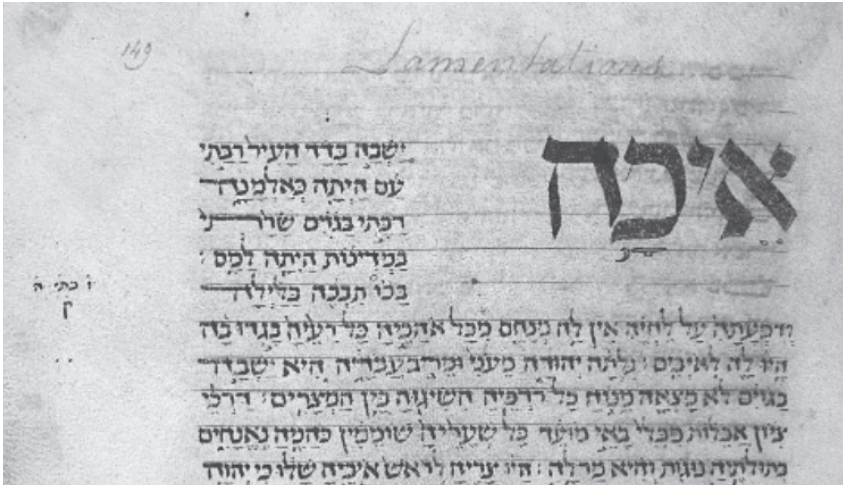 149
Lamentations
אֵיכָה
יָשְׁבָה בָדָד הָעִיר רַבָּתִי
עָם הָיְתָה כְּאַלְמָנָה
רַבָּתִי בַגּוֹיִם שָׂרָתִי
בַּמְּדִינוֹת הָיְתָה לָמַס :
בָּכוֹ תִבְכֶּה בַּלַּיְלָה
וְדִמְעָתָהּ עַל לֶחֱיָהּ אֵין לָהּ מְנַחֵם מִכָּל אֹהֲבֶיהָ כָּל רֵעֶיהָ בָּגְדוּ בָהּ
הָיוּ לָהּ לְאֹיְבִים : גָּלְתָה יְהוּדָה מֵעֹנִי וּמֵרֹב עֲבֹדָה הִיא יָשְׁבָה
בַגּוֹיִם לֹא מָצְאָה מָנוֹחַ כָּל רֹדְפֶיהָ הִשִּׂיגוּהָ בֵּין הַמְּצָרִים : דַּרְכֵי
צִיּוֹן אֲבֵלוֹת מִבְּלִי בָּאֵי מוֹעֵד כָּל שְׁעָרֶיהָ שׁוֹמֵמִין כֹּהֲנֶיהָ נֶאֱנָחִים
בְּתוּלֹתֶיהָ נּוּגוֹת וְהִיא מַר לָהּ : הָיוּ צָרֶיהָ לְרֹאשׁ אֹיְבֶיהָ שָׁלוּ כִּי יְהוָה